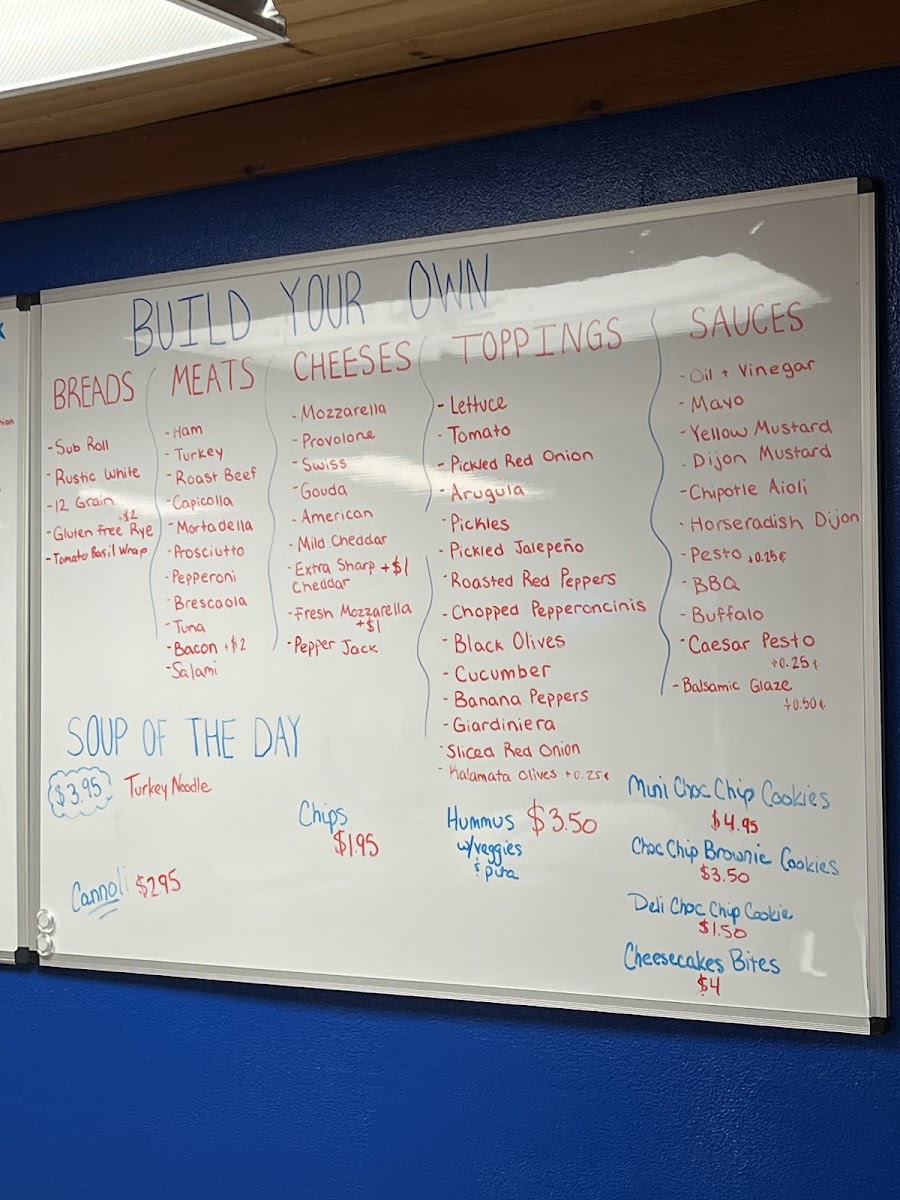 BUILD YOUR OWN
BREADS
- Sub Roll
- Rustic White
- 12 Grain
+$2
- Gluten Free Rye
- Tomato Basil Wrap
MEATS
- Ham
- Turkey
- Roast Beef
- Capicolla
- Mortadella
- Prosciutto
- Pepperoni
- Brescaola
- Tuna
- Bacon +$2
- Salami
CHEESES
- Mozzarella
- Provolone
- Swiss
- Gouda
- American
- Mild Cheddar
- Extra Sharp +$1
Cheddar
- Fresh Mozzarella
+$1
- Pepper Jack
TOPPINGS
- Lettuce
- Tomato
- Pickled Red Onion
- Arugula
- Pickles
- Pickled Jalepeño
- Roasted Red Peppers
- Chopped Pepperoncinis
- Black Olives
- Cucumber
- Banana Peppers
- Giardiniera
- Sliced Red Onion
- Kalamata Olives +0.25¢
SAUCES
- Oil + Vinegar
- Mayo
- Yellow Mustard
- Dijon Mustard
- Chipotle Aioli
- Horseradish Dijon
- Pesto +0.25¢
- BBQ
- Buffalo
- Caesar Pesto
+0.25¢
- Balsamic Glaze
+0.50¢
SOUP OF THE DAY
$3.95 Turkey Noodle
Cannoli $2.95
Chips
$1.95
Hummus $3.50
w/veggies
& pita
Mini Choc Chip Cookies
$4.95
Choc Chip Brownie Cookies
$3.50
Deli Choc Chip Cookie
$1.50
Cheesecakes Bites
$4